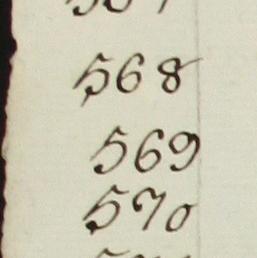 568
569
570